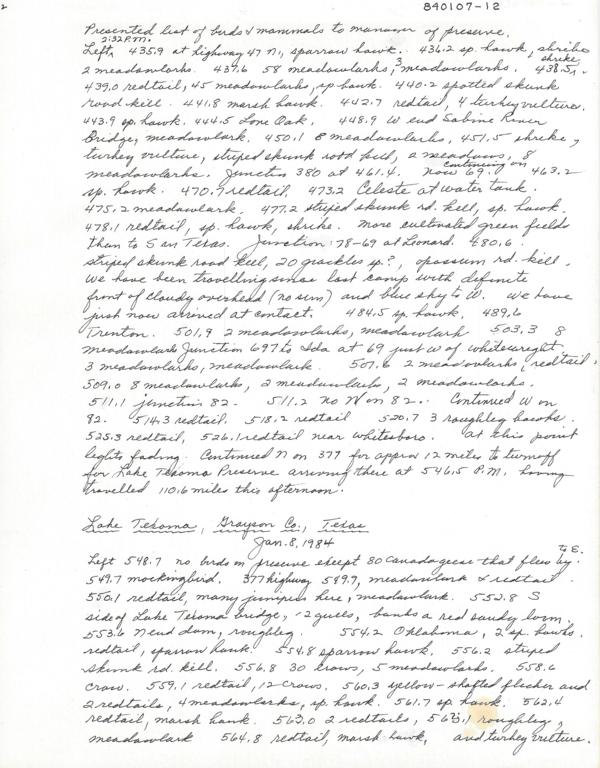 2
840107-12
Presented list of birds & mammals to manager of preserve.
2:32 P.M.
Left, 435.9 at highway 47 N., sparrow hawk. 436.2 sp. hawk, shrike
2 meadowlarks. 437.6 58 meadowlarks, 3 meadowlarks. 438.5 shrike,
439.0 redtail, 45 meadowlarks, sp. hawk. 440.2 spotted skunk
road kill. 441.8 marsh hawk. 442.7 redtail, 4 turkey vultures.
443.9 sp. hawk. 444.5 Lone Oak. 448.9 W end Sabine River
Bridge, meadowlark. 450.1 8 meadowlarks, 451.5 shrike,
turkey vulture, striped skunk road kill, 2 meadows, 8
meadowlarks. Junction 380 at 461.4. Now continuing on 69. 463.2
sp. hawk. 470.7 redtail. 473.2 Celeste at water tank.
475.2 meadowlark. 477.2 striped skunk rd. kill, sp. hawk.
478.1 redtail, sp. hawk, shrike. More cultivated green fields
than to S in Texas. Junction: 78-69 at Leonard. 480.6
striped skunk road kill, 20 grackles sp.?, opossum rd. kill.
We have been travelling since last camp with definite
front of cloudy overhead (no sun) and blue sky to W. We have
just now arrived at contact. 484.5 sp. hawk. 489.6
Trenton. 501.9 2 meadowlarks, meadowlark 503.3 8
meadowlarks Junction 697 to Ida at 69 just W of Whitewright
3 meadowlarks, meadowlark. 507.6 2 meadowlarks, redtail,
509.0 8 meadowlarks, 2 meadowlarks, 2 meadowlarks.
511.1 junction 82. 511.2 no N on 82.. Continued W on
82. 514.3 redtail. 518.2 redtail 520.7 3 roughleg hawks.
525.3 redtail, 526.1 redtail near Whitesboro. At this point
lights fading. Continued N on 377 for approx 12 miles to turnoff
for Lake Texoma Preserve arriving there at 546.5 P.M. having
travelled 110.6 miles this afternoon.
Lake Texoma, Grayson Co., Texas
Jan. 8, 1984
Left 548.7 no birds on preserve except 80 Canada geese that flew by to E.
549.7 mockingbird. 377 highway 549.9, meadowlark & redtail
550.1 redtail, many junipers here, meadowlark. 552.8 S
side of Lake Texoma bridge, 2 gulls, banks a red sandy loam.
553.6 N end dam, roughleg. 554.2 Oklahoma, 2 sp. hawks.
redtail, sparrow hawk. 554.8 sparrow hawk. 556.2 striped
skunk rd. kill. 556.8 30 crows, 5 meadowlarks. 558.6
crow. 559.1 redtail, 12 crows. 560.3 yellow-shafted flicker and
2 redtails, 4 meadowlarks, sp. hawk. 561.7 sp. hawk. 562.4
redtail, marsh hawk. 563.0 2 redtails, 563.1 roughleg,
meadowlark 564.8 redtail, marsh hawk, and turkey vulture.